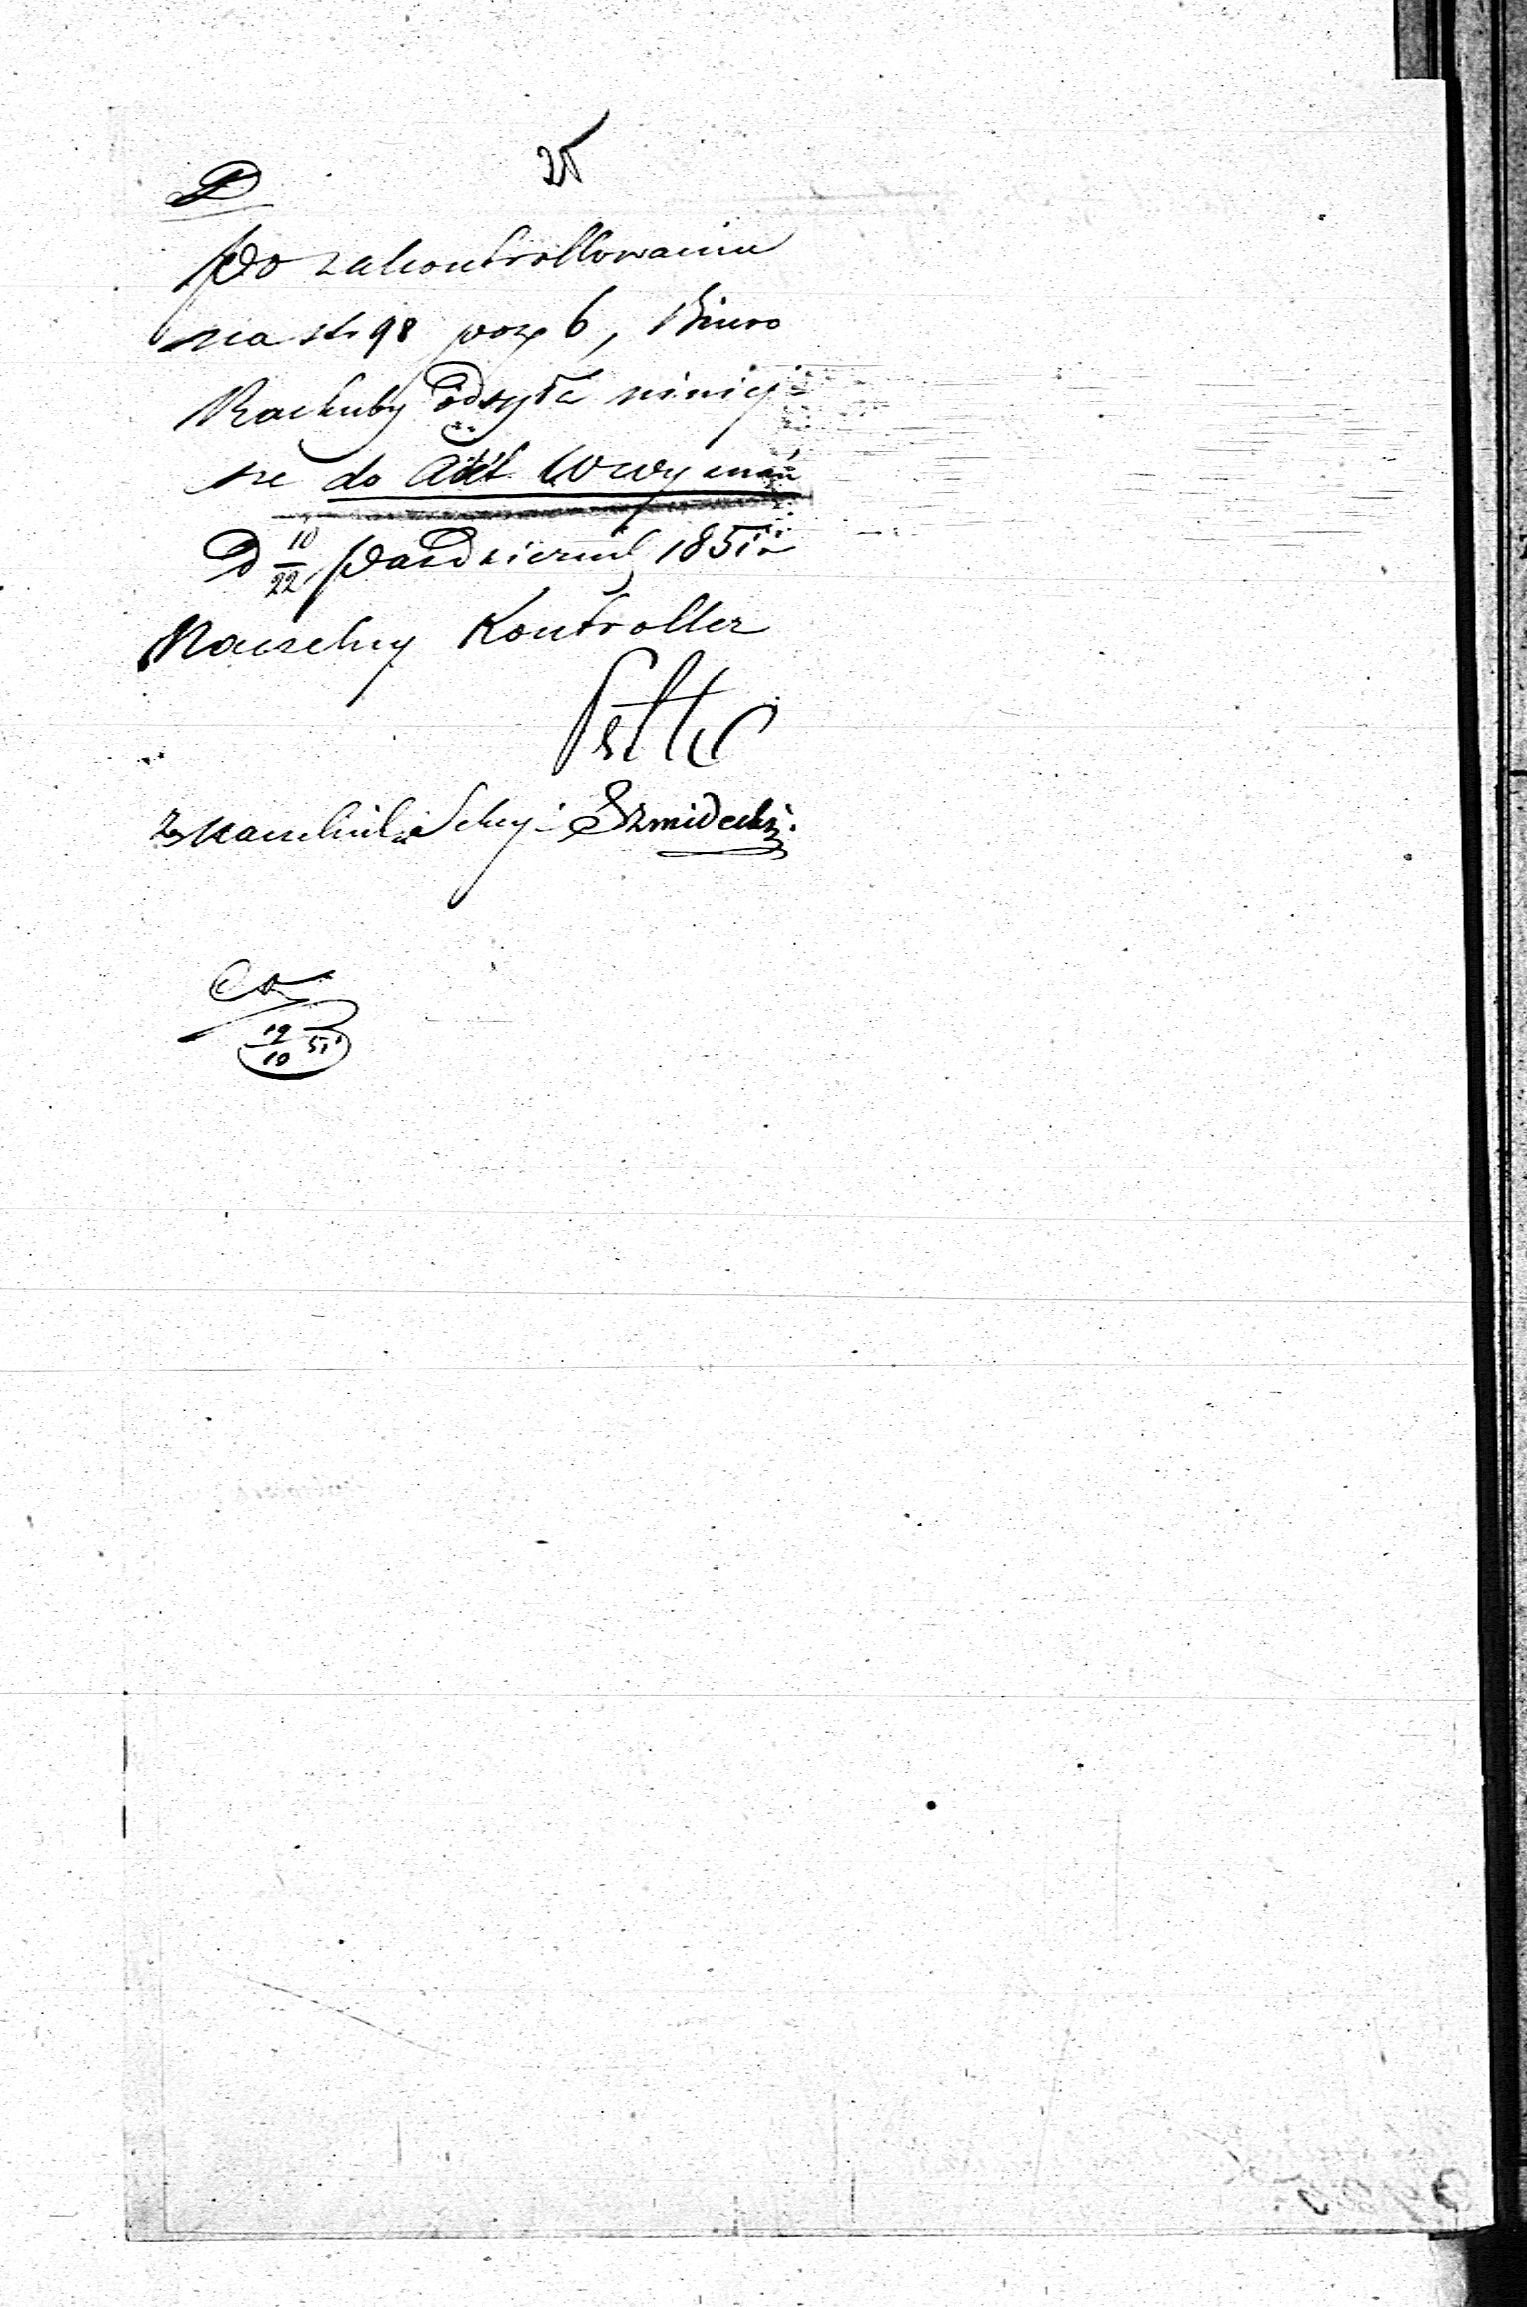 25
Po zakontrollowaniu
na str 98 poz 6, Biuro
Rachuby odsyła niniej-
sze do Akt
D 10/22 Październik 1851 r
Naczelny Kontroller
Naczelnik Sekcyi Szmidecki.
19/10 51